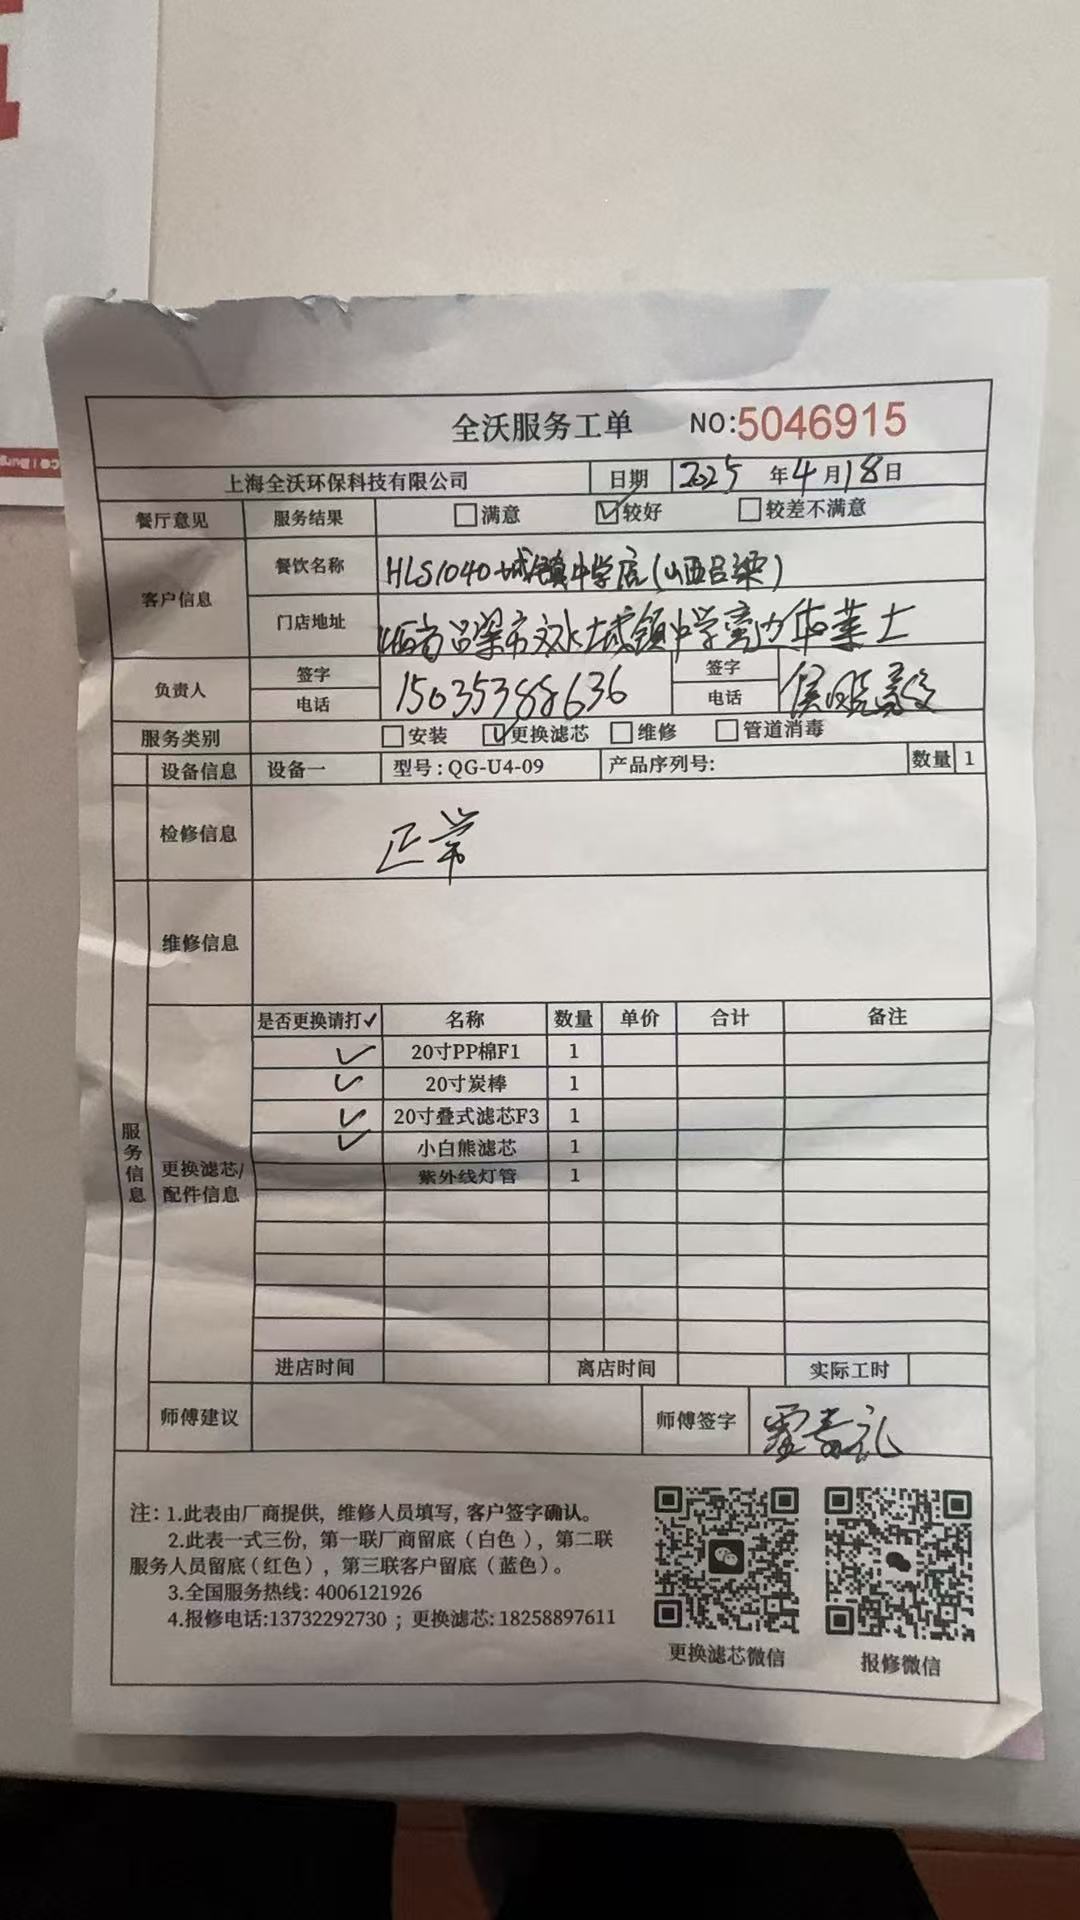 全沃服务工单 NO:5046915
上海全沃环保科技有限公司 日期 2025 年 4 月 18 日
餐厅意见 服务结果 满意 较好 较差不满意
客户信息 餐饮名称 HLS1040-城镇中学店(山西吕梁)
门店地址 山西省吕梁市文水城镇中学旁边华莱士
负责人 签字 签字
电话 15035388636 电话
服务类别 安装 更换滤芯 维修 管道消毒
设备信息 设备一 型号:QG-U4-09 产品序列号: 数量 1
检修信息 正常
维修信息
服务信息
更换滤芯/配件信息
是否更换请打✓ 名称 数量 单价 合计 备注
✓ 20寸PP棉F1 1
✓ 20寸炭棒 1
✓ 20寸叠式滤芯F3 1
✓ 小白熊滤芯 1
紫外线灯管 1
进店时间 离店时间 实际工时
师傅建议 师傅签字
注: 1.此表由厂商提供, 维修人员填写, 客户签字确认。
2.此表一式三份, 第一联厂商留底 (白色), 第二联
服务人员留底 (红色), 第三联客户留底 (蓝色)。
3.全国服务热线: 4006121926
4.报修电话:13732292730 ; 更换滤芯: 18258897611
更换滤芯微信 报修微信